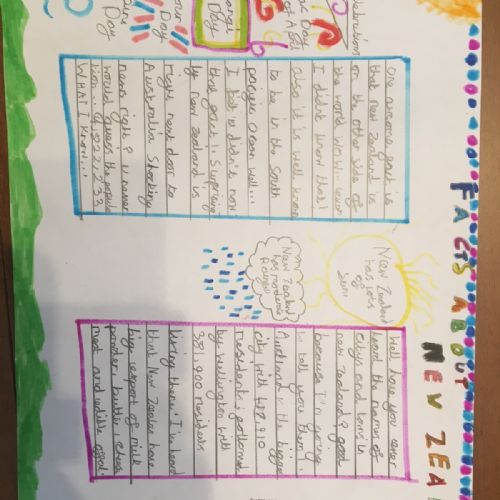 FACTS ABOUT NEW ZEA
elebrations
Day
Day
Day
Day
One awesome fact is
that New Zealand is
on the other side of
the world wow... even
I didn't know that!
also it is well known
to be in the South
pacific Ocean well...
I bet u didn't now
that fact!! Surprising
ly New Zealand is
right next door to
Australia Shocking
news right? U never
would guess the popula
tion... 4,822,233
WHAT I KNOW...!
New Zealand
has lots
of
Sun!
New Zealand
has moderate
Rainfall
Well have you ever
heard the names of
citys and towns in
new zealand? good
because I'm going
to tell you them!.
Auckland is the biggest
city with
residents; followed
by wellington with
381,900 residents
living there. I've heard
that New Zealand have
big export of milk
powder, butter, cheese
meat and edible offal.